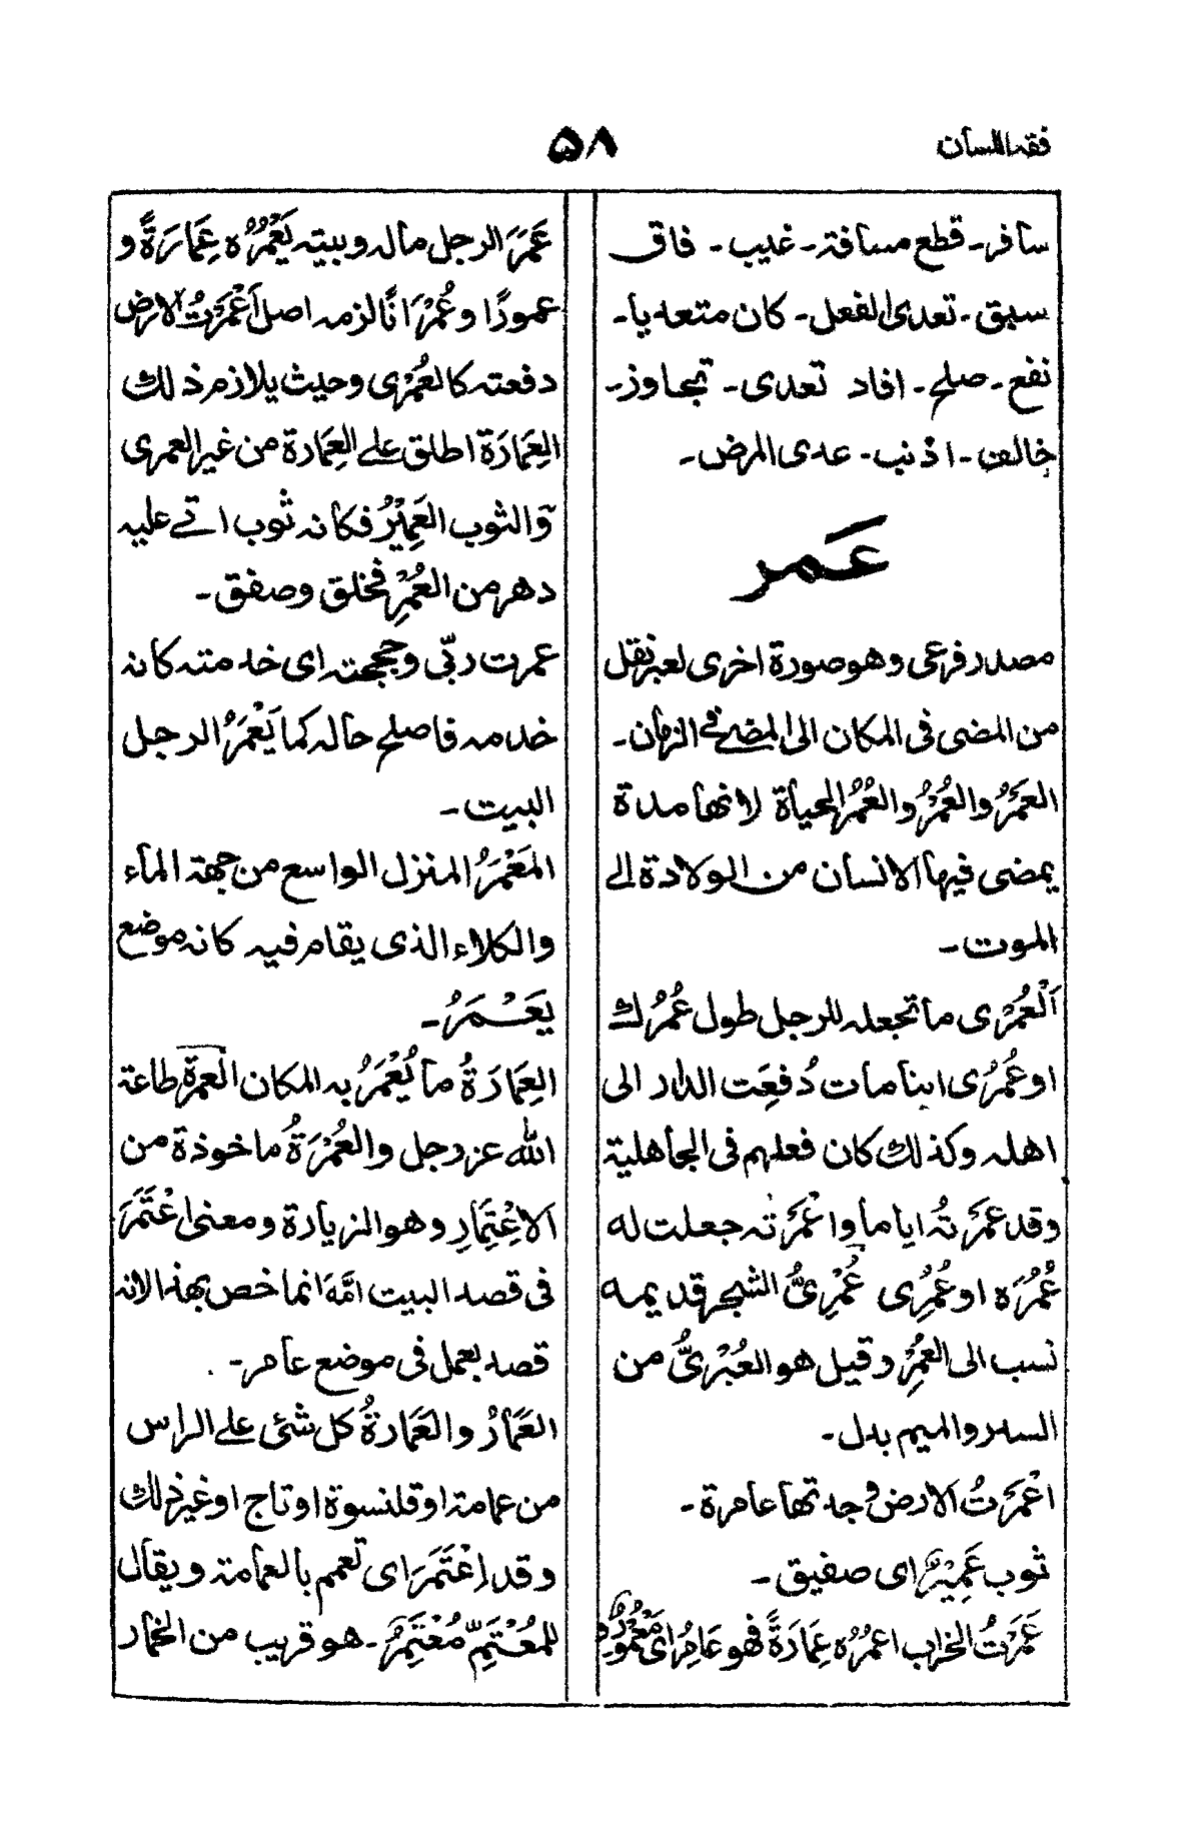 فقه اللسان
۵۸
سافر۔ قطع مسافة۔ غیب۔ فاق
سبق۔ تعدی الفعل۔ کان متعدیا۔
نفع۔ صلح۔ افاد تعدی۔ تجاوز۔
خالف۔ اذنب۔ عدی المرض۔
عَمر
مصدر فرعی وهو صورة اخری لعبر نقل
من المضی فی المکان الی المضے فے الزمان۔
العَمْرُ والعُمْرُ والعُمُرُ الحیاة لانها مدة
یمضی فیها الانسان من الولادة الے
الموت۔
اَلْعُمْرٰی ما تجعله للرجل طول عُمُرك
او عُمُرِی اینا مات دُفِعَت الدار الی
اهله وکذلك کان فعلهم فی الجاهلیة
وقد عَمَرَتهُ ایاما وا عْمَرْته جعلت له
عُمُرَه او عُمُرِی عُمْرِیُّ الشجر قدیمه
نسب الی العُمُرِ وقیل هو العُبْرِیُّ من
السدر والمیم بدل۔
اعْمَرْتُ الارض وجدتها عامرة۔
ثوب عَمِیْرٌ ای صفیق۔
عَمَرْتُ الخراب اعمُرُه عِمَارَةً فهو عَامِرٌ ای مَعْمُورٌ و
عَمَرَ الرجل ماله وبیته یَعْمُرُه عِمَارَةً و
عمورًا وعُمْرَانًا لزمه اصل اَعْمَرْتُ الارض
دفعته کالعُمْرٰی وحیث یلازم ذلك
العِمَارَة اطلق علے العِمَارة من غیر العمری
والثوب العَمِیْرُ فکانه ثوب اتے علیه
دهر من العُمُرِ فخلق وصفق۔
عمرت ربّی وحججته ای خدمته کانه
خدمه فاصلح حاله کما یَعْمُرُ الرجل
البیت۔
المَعْمَرُ المنزل الواسع من جهة الماء
والکلاء الذی یقام فیه کانه موضع
یَعْمُرُ۔
العِمَارَةُ ما یُعْمَرُ به المکان العمرة طاعة
الله عز وجل والعُمْرَةُ ماخوذة من
الاِعْتِمَارِ وهو الزیارة ومعنی اعْتَمَرَ
فی قصد البیت انَّهَ انما خص بهذا لانه
قصد بعمل فی موضع عامر۔
العَمَارُ والعَمَارةُ کل شئ علے الراس
من عمامة او قلنسوة او تاج او غیر ذلك
وقد اِعْتَمَرَ ای تعمم بالعمامة ویقال
للمُعْتَمِّ مُعْتَمِرٌ۔ هو قریب من الخمار